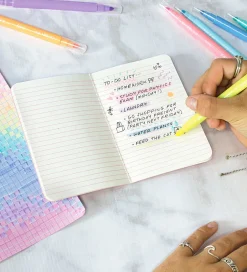 TO-DO LIST
- HOMEWORK
- STUDY FOR PHYSICS
EXAM (MONDAY!)
- LAUNDRY
- GO SHOPPING FOR
BIRTHDAY PRESENT
(PARTY NEXT FRIDAY)
- WATER PLANTS
- FEED THE CAT